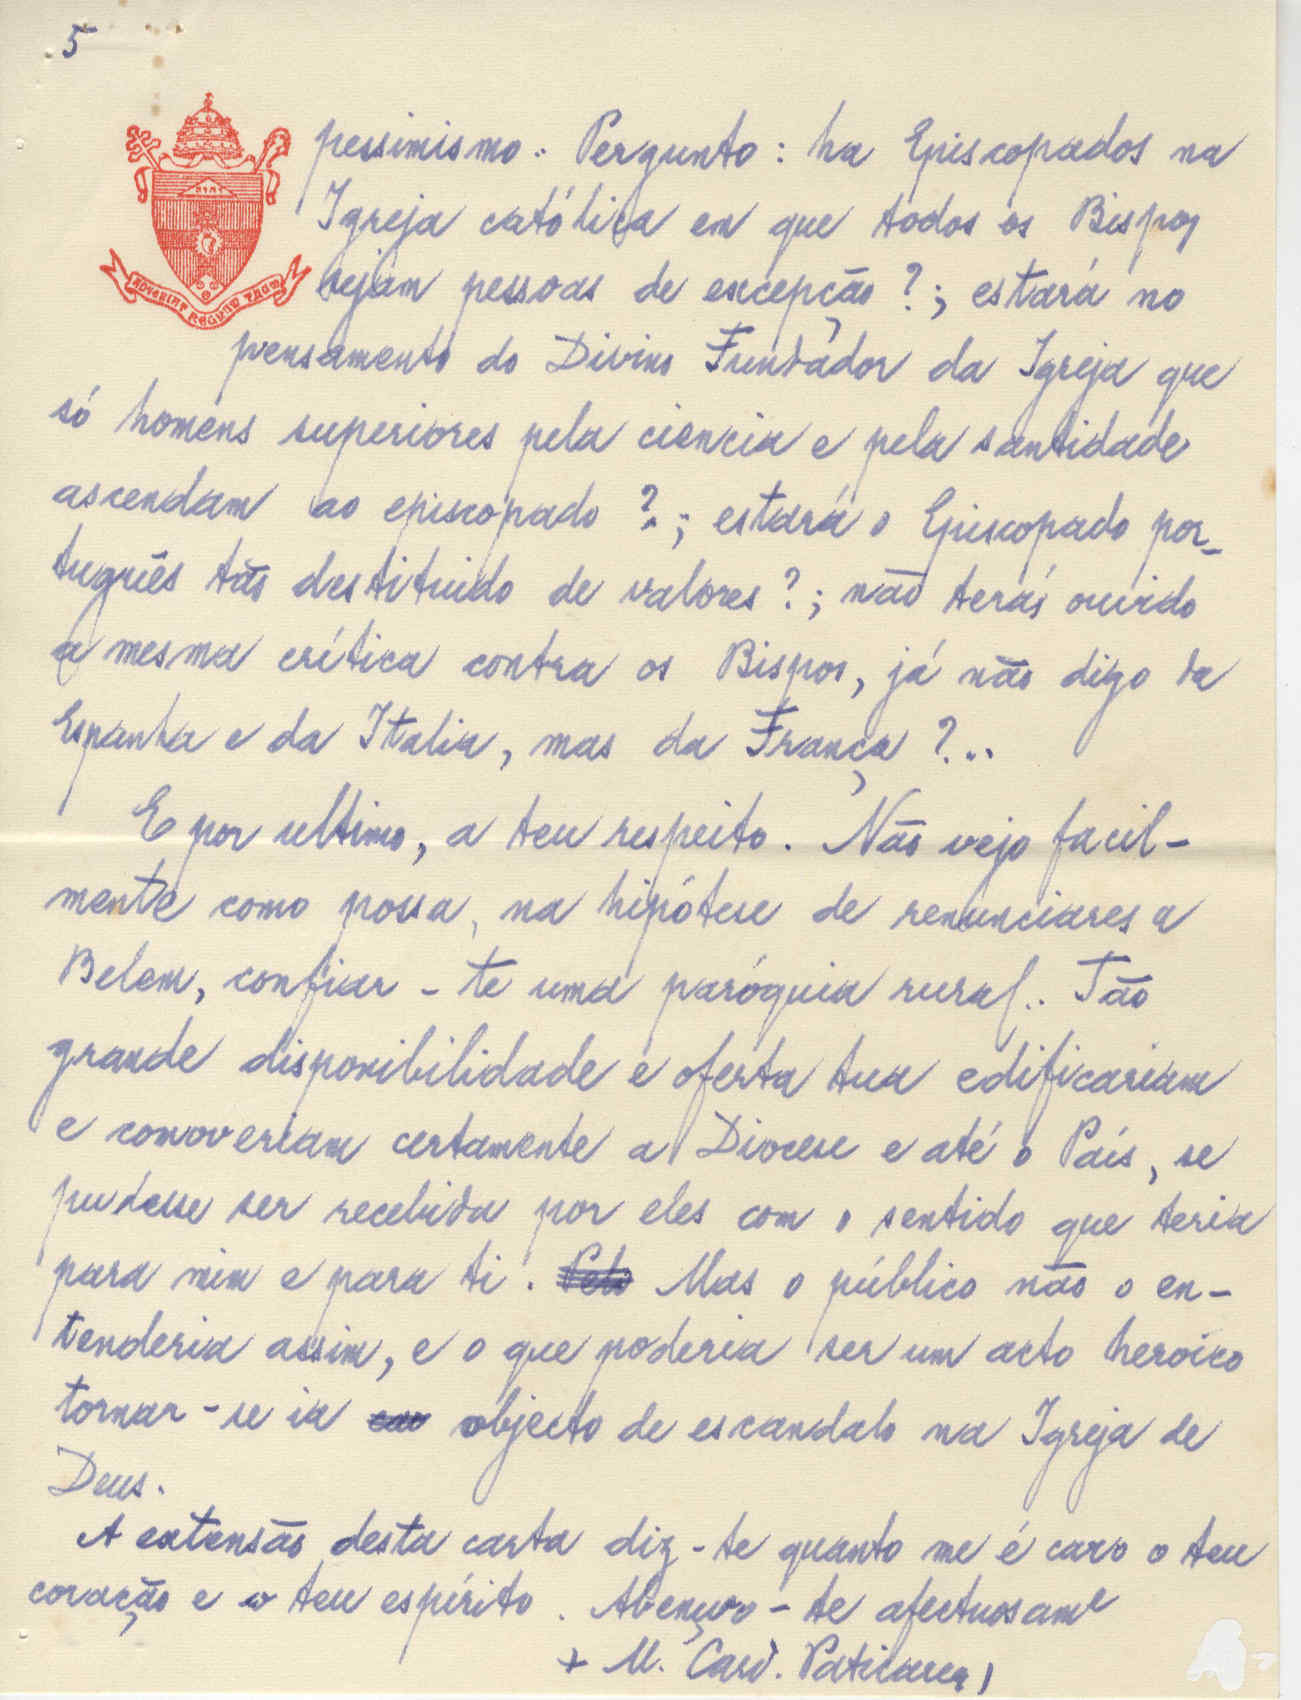 5
pessimismo.. Pergunto: ha Episcopados na
Igreja católica em que todos os Bispos
sejam pessoas de excepção?; estará no
ADVENIAT REGNUM TUUM
pensamento do Divino Fundador da Igreja que
só homens superiores pela ciencia e pela santidade
ascendam ao episcopado?.; estará o Episcopado por-
tuguês tão destituido de valores?; não terás ouvido
a mesma crítica contra os Bispos, já não digo da
Espanha e da Italia, mas da França?...
E por ultimo, a teu respeito. Não vejo facil-
mente como possa, na hipótese de renunciares a
Belem, confiar-te uma paróquia rural.. Tão
grande disponibilidade e oferta tua edificariam
e comoveriam certamente a Diocese e até o País, se
pudesse ser recebida por eles com o sentido que teria
para mim e para ti. Mas o público não o en-
tenderia assim, e o que poderia ser um acto heroico
tornar-se ia objecto de escandalo na Igreja de
Deus.
A extensão desta carta diz-te quanto me é caro o teu
coração e o teu espírito. Abençoo-te afectuosamᵉ
+ M. Card. Patriarca